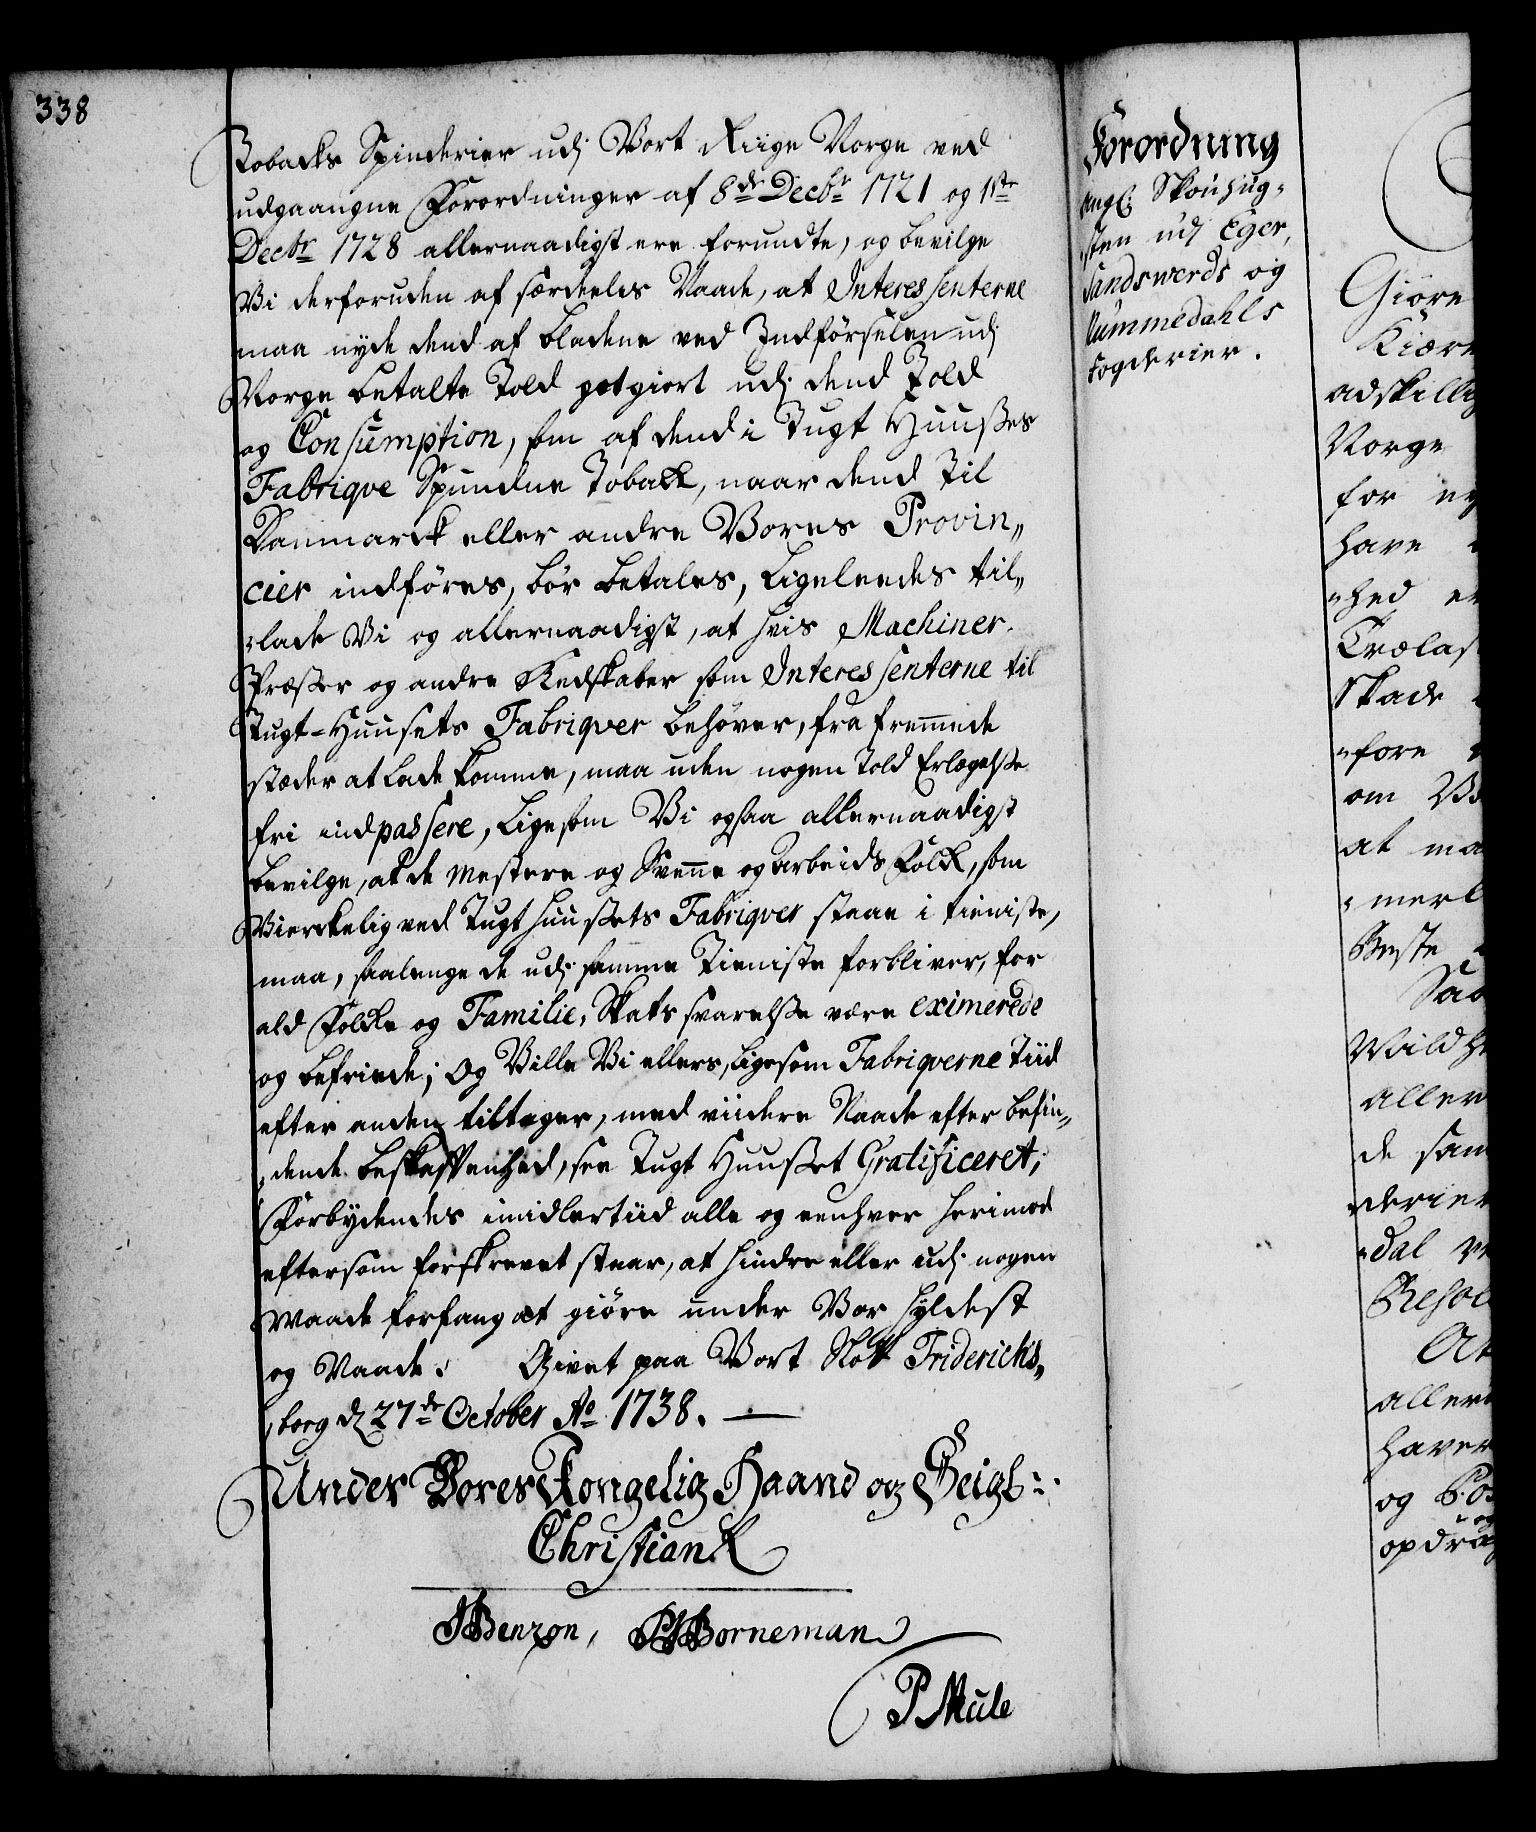 338
Tobacks Spinderier udj Vort Riige Norge ved
udgaangne Forordninger af 8de Decbr 1721 og 1ste
Decbr 1728 allernaadigst ere forundte, og bevilge
Vi derforuden af særdeeles Naade, at Interessenterne
maa nyde dend af bladene ved Indførselen udj
Norge betalte Told gotgiort udj dend Told
og Consumption, som af dend i Tugt Huusses
Fabriqve Spundne Toback, naar dend til
Danmarck eller andre Vores Provin„
cier indføres, bør betales, Ligeleedes til„
„lade Vi og allernaadigst, at hvis Machiner,
Præsser og andre Redskaber som Interessenterne til
Tugt-Huusets Fabriqver behøver, fra fremmede
stæder at lade komme, maa uden nogen Told Erlægelsse
fri indpassere, Ligesom Vi ogsaa allernaadigst
bevilge, at de Mestere og Svenne og Arbeids Folck, som
Vierckelig ved Tugthuussets Fabriqver staae i tieniste,
maa, saalenge de udj samme Tieniste forbliver, for
ald Folcke og Familie, Skats svarelsse være eximerede
og befriede; Og Ville Vi ellers, ligesom Fabriqverne Tiid
efter anden tiltager, med viidere Naade efter befin„
„dende beskaffenhed, see Tugt Huusset Gratificeret;
Forbydendes imidlertiid alle og eenhver herimod
eftersom forskrevet staar, at hindre eller udj nogen
Maade forfang at giøre under Vor hyldest
og Naade. Givet paa Vort Slott Friderichs„
„borg d 27de October Ao 1738. —
Under Vores Kongelig Haand og Seigl
Christian R
JBenzon, Borneman
P Mule
Forordning
angl: Skoufug„
sten udj Eger,
Sandswerds og
Nummedahls
Fogderier.
Giøre
Kiære
adskillig
Norge
for
have
„hed
Trælas
Skade
„fore
om
at ma
merl
Beste
Saa
Wildh
Aller
de sam
„derier
„dal
Resol
At
allern
haver
og
opdrag